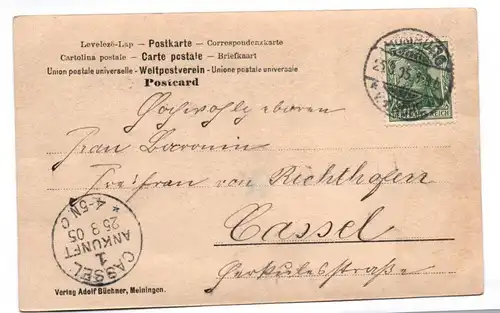 Levelezö-Lap — Postkarte — Correspondenzkarte
Cartolina postale — Carte postale — Briefkaart
Union postale universelle — Weltpostverein — Unione postale universale
Postcard
Hochwohlgeboren
Frau Baronin
Freifrau von Richthofen
Cassel
Herkulesstraße
DEUTSCHES REICH
CASSEL
1
ANKUNFT
25 8 05
* 4-5N C
Verlag Adolf Büchner, Meiningen.